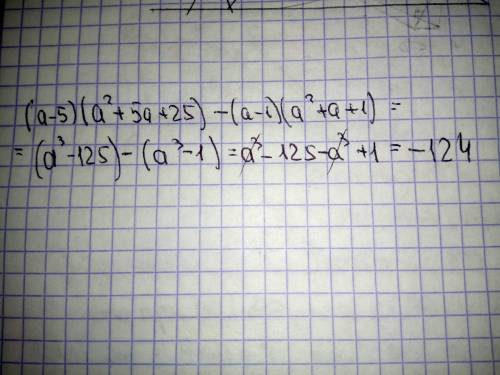 (a-5)(a²+5a+25)-(a-1)(a²+a+1)=
=(a³-125)-(a³-1)=a³-125-a³+1=-124